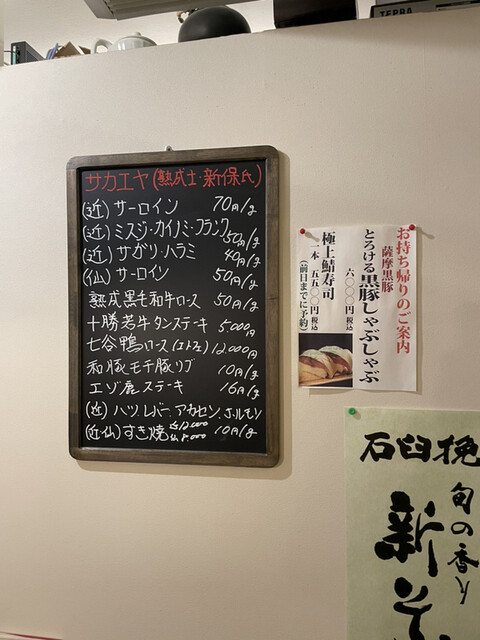 TEPRA
サカエヤ(熟成士・新保氏)
(近)サーロイン 70円/g
(近)ミスジ・カイノミ・フランク 50円/g
(近)サガリ・ハラミ 40円/g
(仙)サーロイン 50円/g
熟成黒毛和牛ロース 50円/g
十勝若牛タンステーキ 5,000円
七谷鴨ロース 12,000円
和豚モチ豚リブ 10円/g
エゾ鹿ステーキ 16円/g
(近)ハツ、レバー、アカセン、ホルモン
(近仙)すき焼 10円/g
お持ち帰りのご案内
薩摩黒豚
とろける黒豚しゃぶしゃぶ
六〇〇〇円税込
極上鯖寿司
一本 五五〇〇円税込
(前日までに予約)
石臼挽
旬の香り
新そ